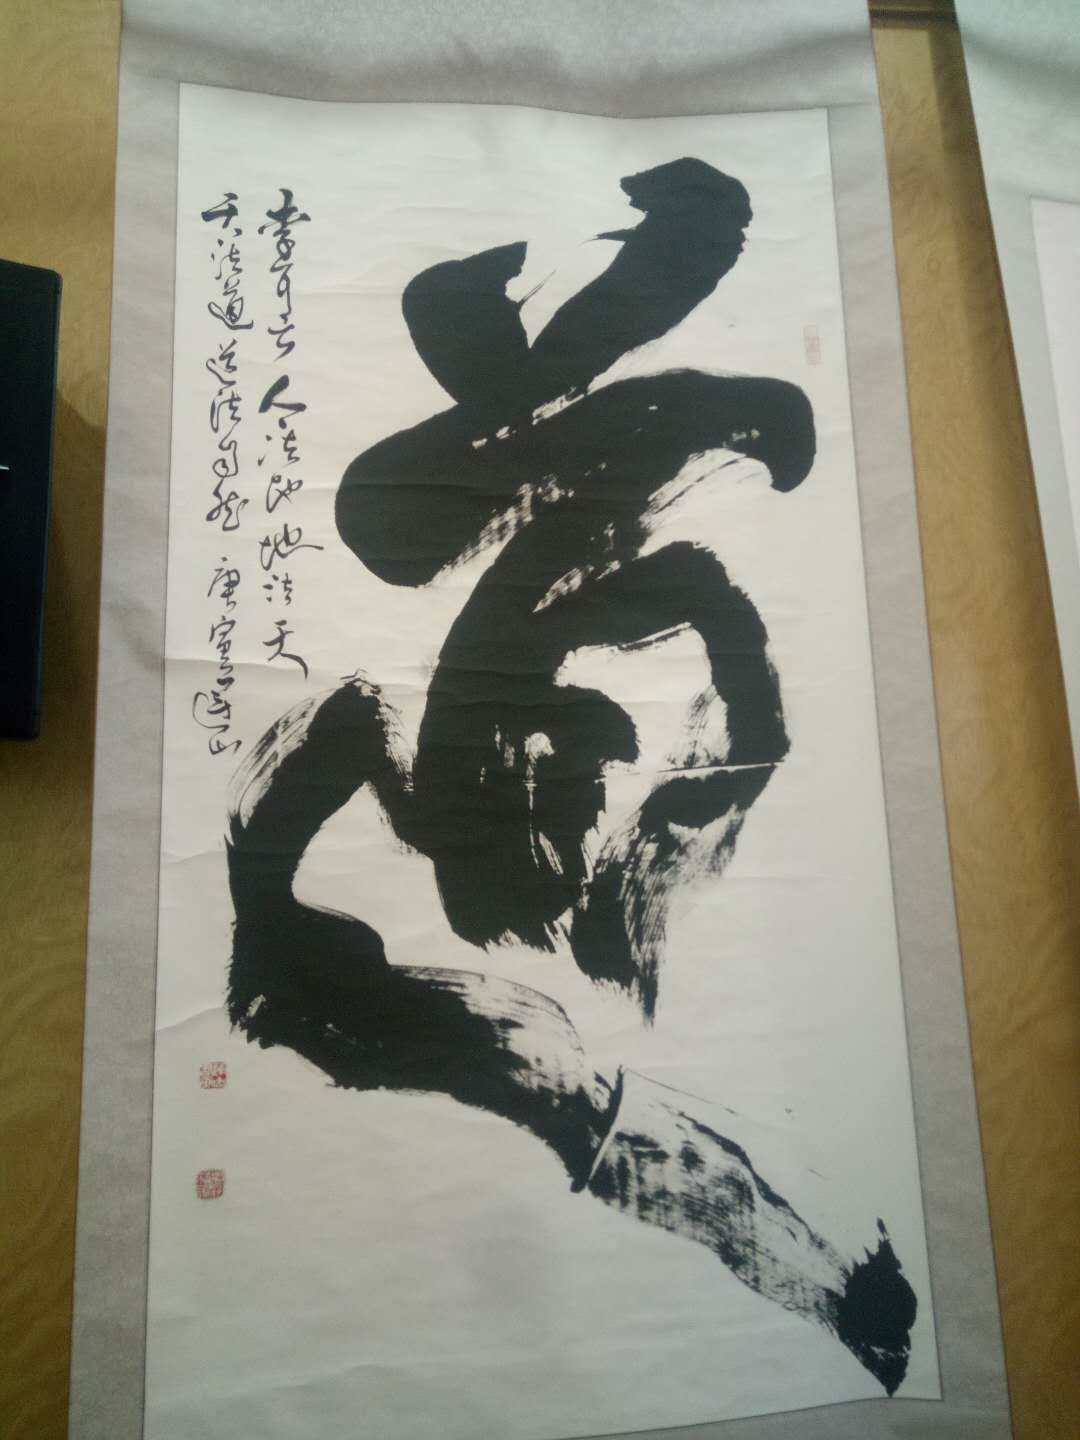 道
李耳云人法地地法天
天法道道法自然庚寅